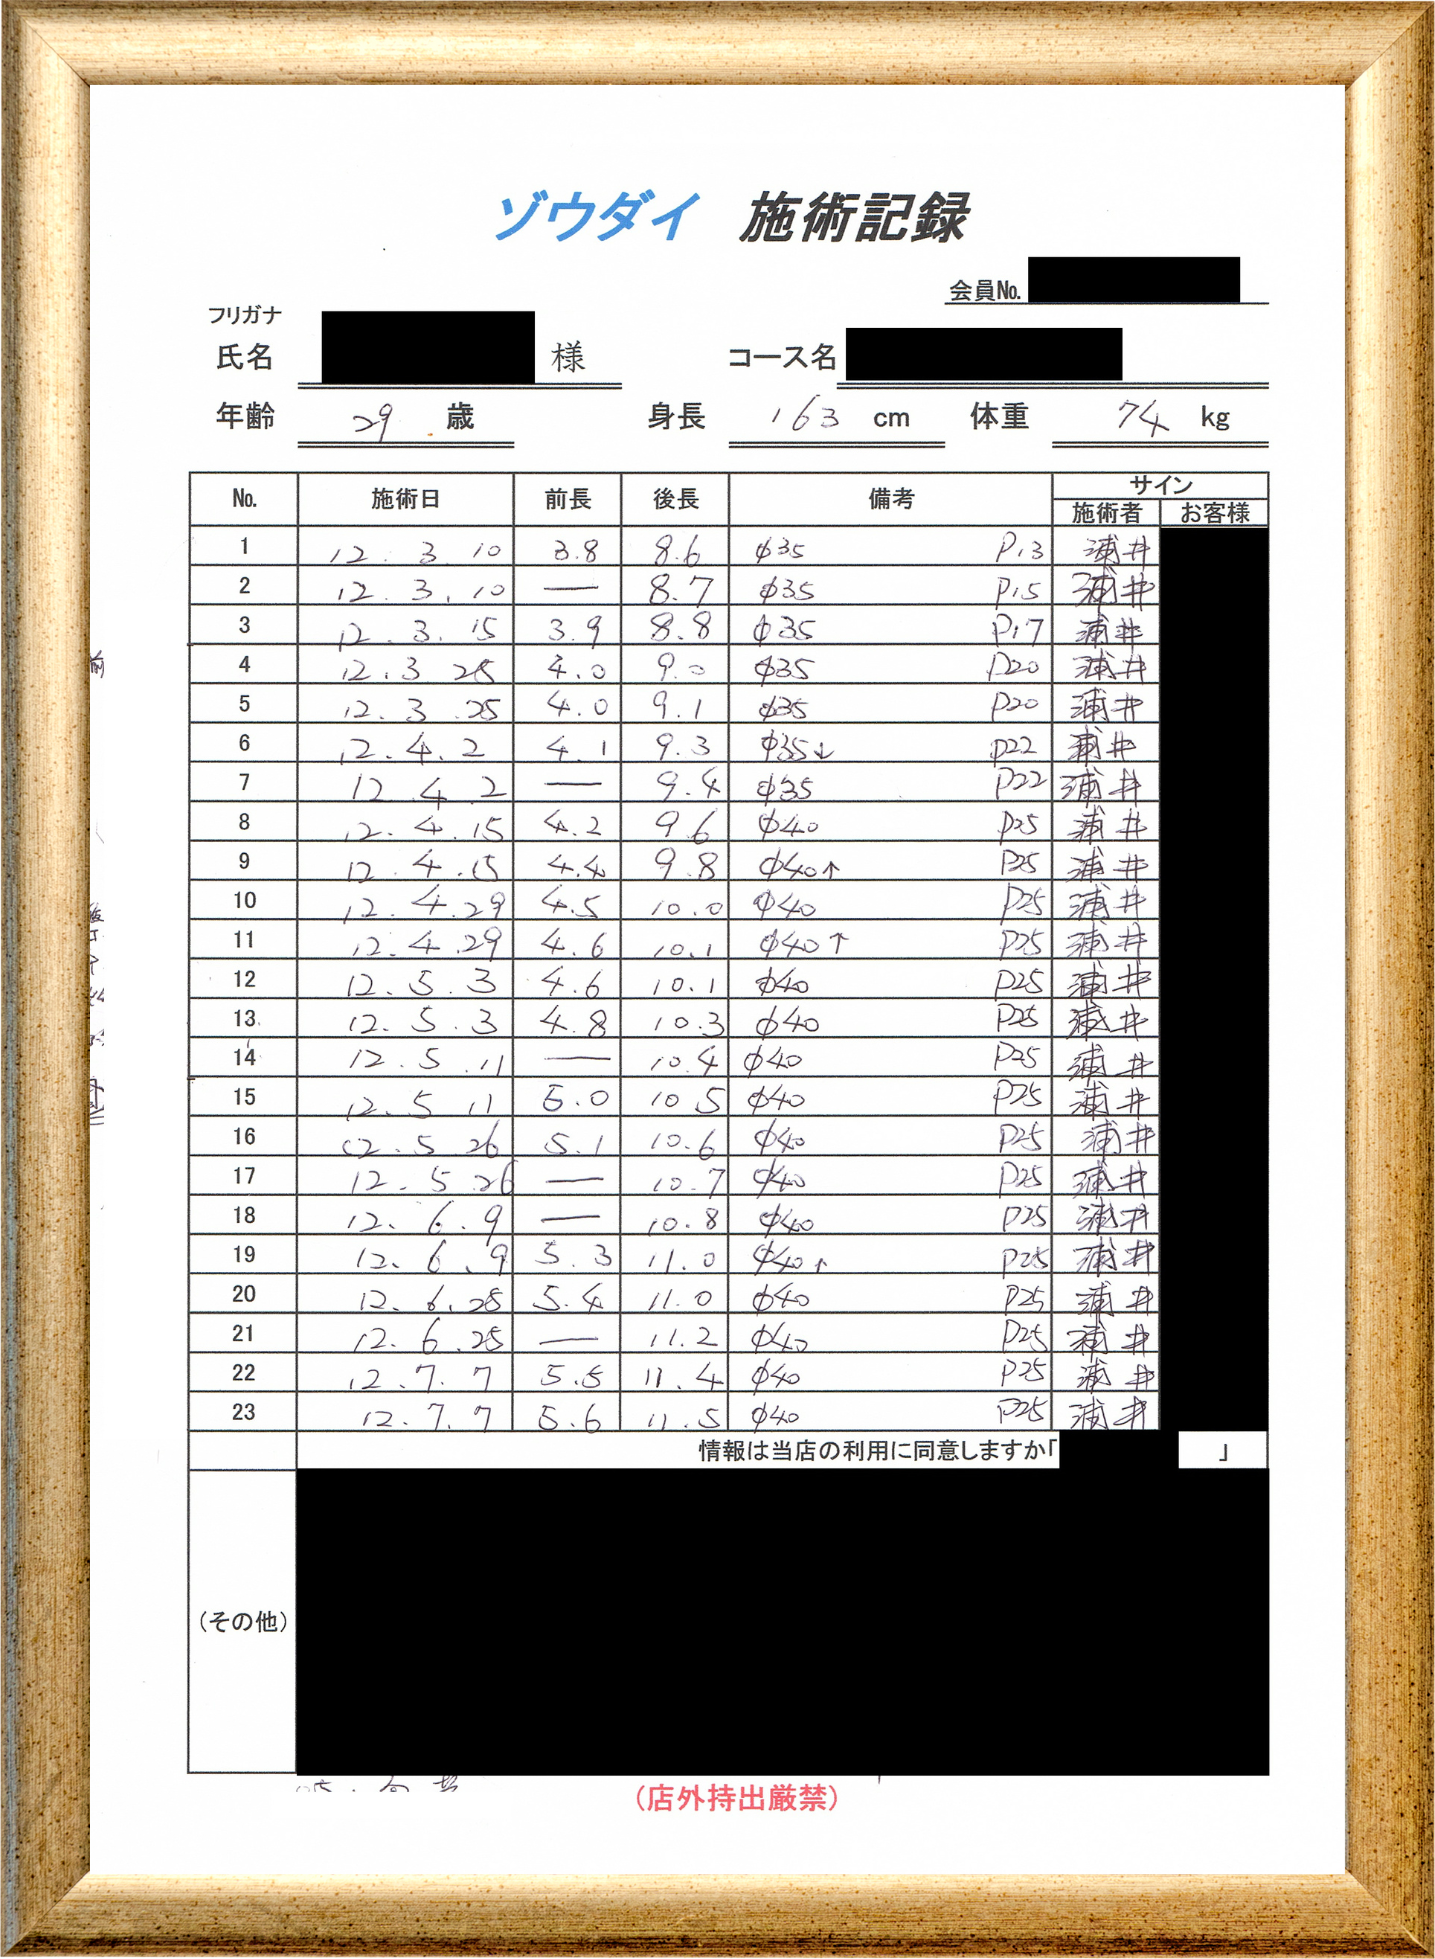 ゾウダイ 施術記録
会員No.
フリガナ
氏名 様 コース名
年齢 29 歳 身長 163 cm 体重 74 kg
No. 施術日 前長 後長 備考 サイン
施術者 お客様
1 12.3.10 3.8 8.6 φ35 P13 浦井
2 12.3.10 — 8.7 φ35 P15 浦井
3 12.3.15 3.9 8.8 φ35 P17 浦井
4 12.3.25 4.0 9.0 φ35 P20 浦井
5 12.3.25 4.0 9.1 φ35 P20 浦井
6 12.4.2 4.1 9.3 φ35↓ P22 浦井
7 12.4.2 — 9.4 φ35 P22 浦井
8 12.4.15 4.2 9.6 φ40 P25 浦井
9 12.4.15 4.4 9.8 φ40↑ P25 浦井
10 12.4.29 4.5 10.0 φ40 P25 浦井
11 12.4.29 4.6 10.1 φ40↑ P25 浦井
12 12.5.3 4.6 10.1 φ40 P25 浦井
13 12.5.3 4.8 10.3 φ40 P25 浦井
14 12.5.11 — 10.4 φ40 P25 浦井
15 12.5.11 5.0 10.5 φ40 P25 浦井
16 12.5.26 5.1 10.6 φ40 P25 浦井
17 12.5.26 — 10.7 φ40 P25 浦井
18 12.6.9 — 10.8 φ40 P25 浦井
19 12.6.9 5.3 11.0 φ40↑ P25 浦井
20 12.6.25 5.4 11.0 φ40 P25 浦井
21 12.6.25 — 11.2 φ40 P25 浦井
22 12.7.7 5.5 11.4 φ40 P25 浦井
23 12.7.7 5.6 11.5 φ40 P25 浦井
情報は当店の利用に同意しますか「 」
（その他）
（店外持出厳禁）